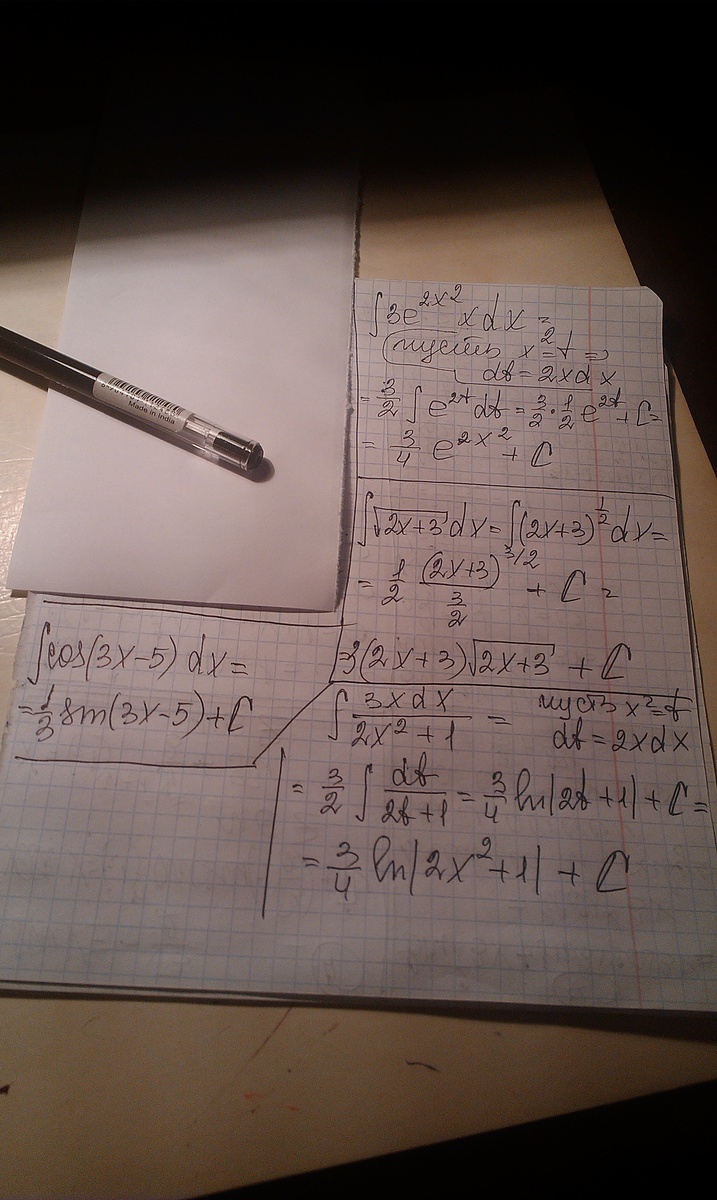 ∫3e^{2x^2} x dx =
пусть x^2 = t =>
dt = 2x dx
= 3/2 ∫ e^{2t} dt = 3/2 · 1/2 e^{2t} + C =
= 3/4 e^{2x^2} + C
∫√(2x+3) dx = ∫(2x+3)^{1/2} dx =
= 1/2 (2x+3)^{3/2} / (3/2) + C =
3(2x+3)√(2x+3) + C
∫cos(3x-5) dx =
= 1/3 sin(3x-5) + C
∫ 3x dx / (2x^2+1) = пусть x^2 = t
dt = 2x dx
= 3/2 ∫ dt / (2t+1) = 3/4 ln|2t+1| + C =
= 3/4 ln|2x^2+1| + C
Made in India